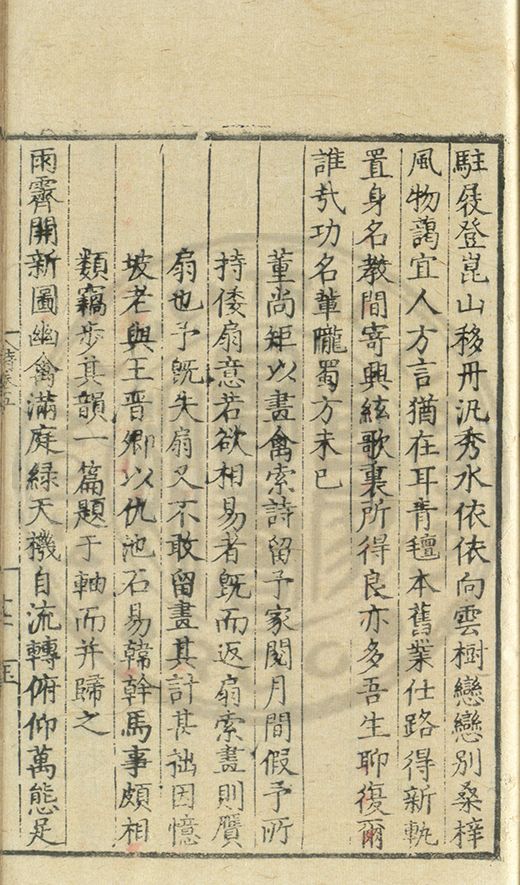 駐屐登崑山移舟汎秀水依依向雲樹戀戀別桑梓
風物藹宜人方言猶在耳青氊本舊業仕路得新軌
置身名教間寄興絃歌裏所得良亦多吾生聊復爾
誰為功名輩隴蜀方未已
董尚矩以畫禽索詩留予家閱月間假予所
持倭扇意若欲相易者既而返扇索畫則贗
扇也予既失扇又不敢留畫其計甚詘因憶
坡老與王晉卿以仇池石易韓幹馬事頗相
類竊步其韻一篇題于軸而并歸之
雨霽開新圖幽禽滿庭綠天機自流轉俯仰萬態足